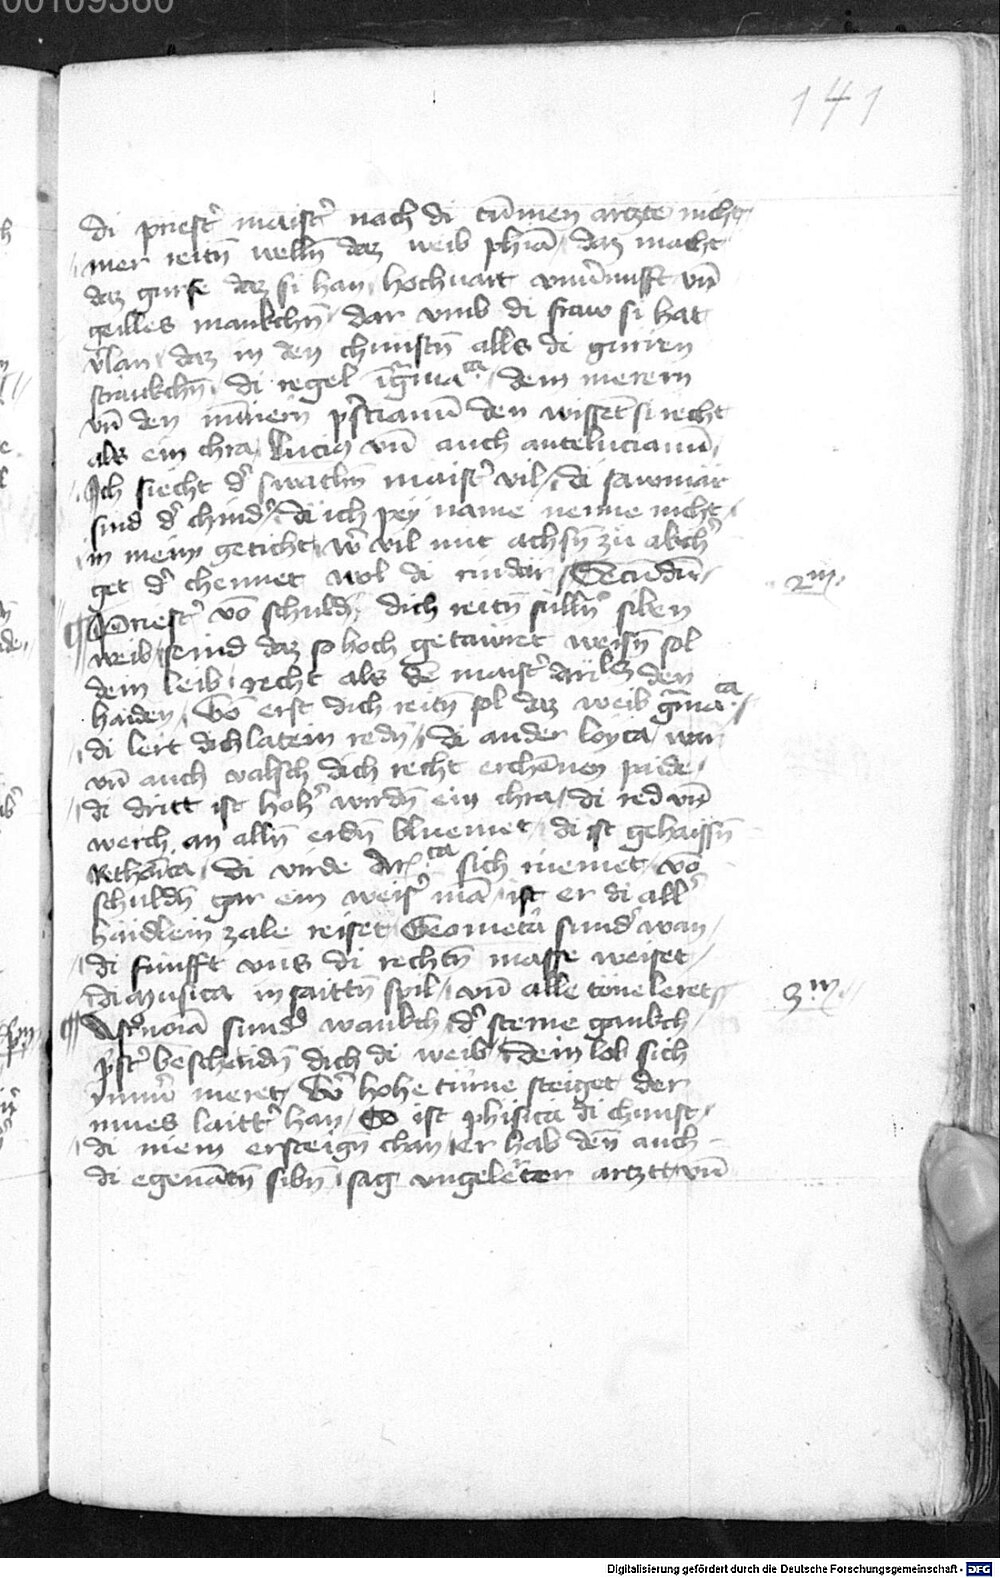 00109360
141
di priest' maist' nach di tūmen artzte nicht
mer reitn̄ welln̄ daz weib phiā / daz macht
daz gurse daz si han hochuart vnu'nufft vn̄
geilles mankchn̄ / dar vmb di fraw si hat
v'lan / daz in den chunstn̄ alls di gurren
strankchn̄ / di regel īgm̄a ca / dem merern
vn̄ den mīnern p'scianū den wissēt si recht
als ein chra / lucid vn̄ auch antelucianū /
Ich siecht d' swachn̄ maist' vil / di sawmär
sind d' chind' / di ich pey name nenne nicht /
in meim geticht / w' vil mit achsn̄ zu akch'
get d' chennet wol di rindär / Secūdū /
2m
Priest' vō schuldn̄ dich reitn̄ sulln̄ siben
weib / seind daz so hoch getawret weisn̄ sol
dein leib / recht als dē maist' den
haiden / Vō erst dich reitn̄ sol daz weib gm̄a ca /
di lert dich latein redn̄ / di ander loyca / war
vn̄ auch valsch dich recht erchēnen paide /
di dritt ist hoh' wirdn̄ ein chra / di red vn̄
werch an alln̄ erdn̄ bluemet / di ist gehaissn̄
Rethōica / di virde Ar ca sich niemet / vō
schuldn̄ gar ein weis' mā / ist er di all'
häidlein zale reiset / Geomet'a sund' wan /
di funfft vns di rechtn̄ masse weiset /
di musica in saittn̄ spil / vn̄ alle töne leret
3m
Ast'noiā sund' wankch / d' sterne gankch /
p'st' bescheidn̄ dich di weib / dein lob sich
ymm' meret / W' hohe türne steiget der
mues laitt' han / So ist phisica di chunst /
di niem ersteign̄ chan / er hab den auch
di egenātn̄ sibn̄ / sag vngelert'er artzt / vn̄
Digitalisierung gefördert durch die Deutsche Forschungsgemeinschaft - DFG